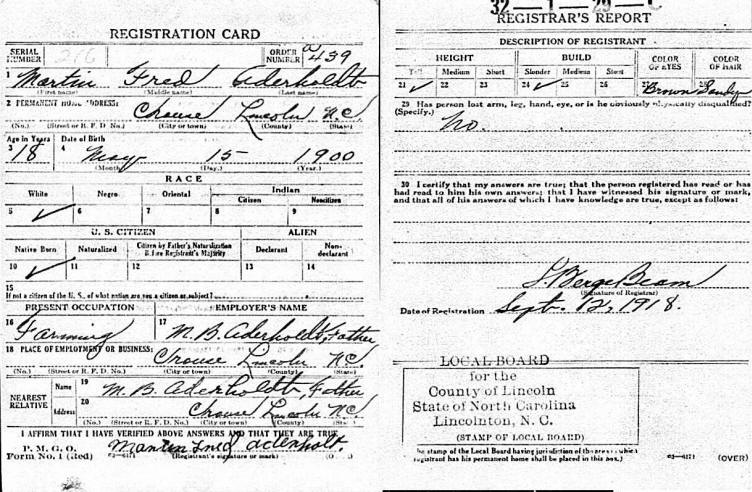 REGISTRATION CARD
SERIAL NUMBER 216 ORDER NUMBER a 439
1 Martin Fred Aderholdt
(First name) (Middle name) (Last name)
2 PERMANENT HOME ADDRESS: Crouse Lincoln N.C.
(No.) (Street or R. F. D. No.) (City or town) (County) (State)
Age in Years Date of Birth
3 18 4 May 15 1900
(Month.) (Day.) (Year.)
RACE
White Negro Oriental Indian
Citizen Noncitizen
5 ✓ 6 7 8 9
U. S. CITIZEN ALIEN
Native Born Naturalized Citizen by Father's Naturalization Before Registrant's Majority Declarant Non-declarant
10 ✓ 11 12 13 14
15
If not a citizen of the U. S., of what nation are you a citizen or subject?
PRESENT OCCUPATION EMPLOYER'S NAME
16 Farming 17 M. B. Aderholdt, Father
18 PLACE OF EMPLOYMENT OR BUSINESS: Crouse Lincoln N.C.
(No.) (Street or R. F. D. No.) (City or town) (County) (State)
NEAREST RELATIVE Name 19 M. B. Aderholdt, Father
Address 20 Crouse Lincoln N.C.
(No.) (Street or R. F. D. No.) (City or town) (County) (State)
I AFFIRM THAT I HAVE VERIFIED ABOVE ANSWERS AND THAT THEY ARE TRUE
P. M. G. O.
Form No. 1 (Red) 03—6171 Martin Fred Aderholt.
(Registrant's signature or mark)
32—1—29—C
REGISTRAR'S REPORT
DESCRIPTION OF REGISTRANT
HEIGHT BUILD COLOR OF EYES COLOR OF HAIR
Tall Medium Short Slender Medium Stout
21 ✓ 22 23 24 ✓ 25 26 27 Brown Sandy
29 Has person lost arm, leg, hand, eye, or is he obviously physically disqualified?
(Specify.) No.
30 I certify that my answers are true; that the person registered has read or has
had read to him his own answers; that I have witnessed his signature or mark,
and that all of his answers of which I have knowledge are true, except as follows:
S. Berge Beam
(Signature of Registrar)
Date of Registration Sept. 12, 1918.
LOCAL BOARD
for the
County of Lincoln
State of North Carolina
Lincolnton, N. C.
(STAMP OF LOCAL BOARD)
The stamp of the Local Board having jurisdiction of the area in which the
registrant has his permanent home shall be placed in this box.)
03—6171 (OVER)